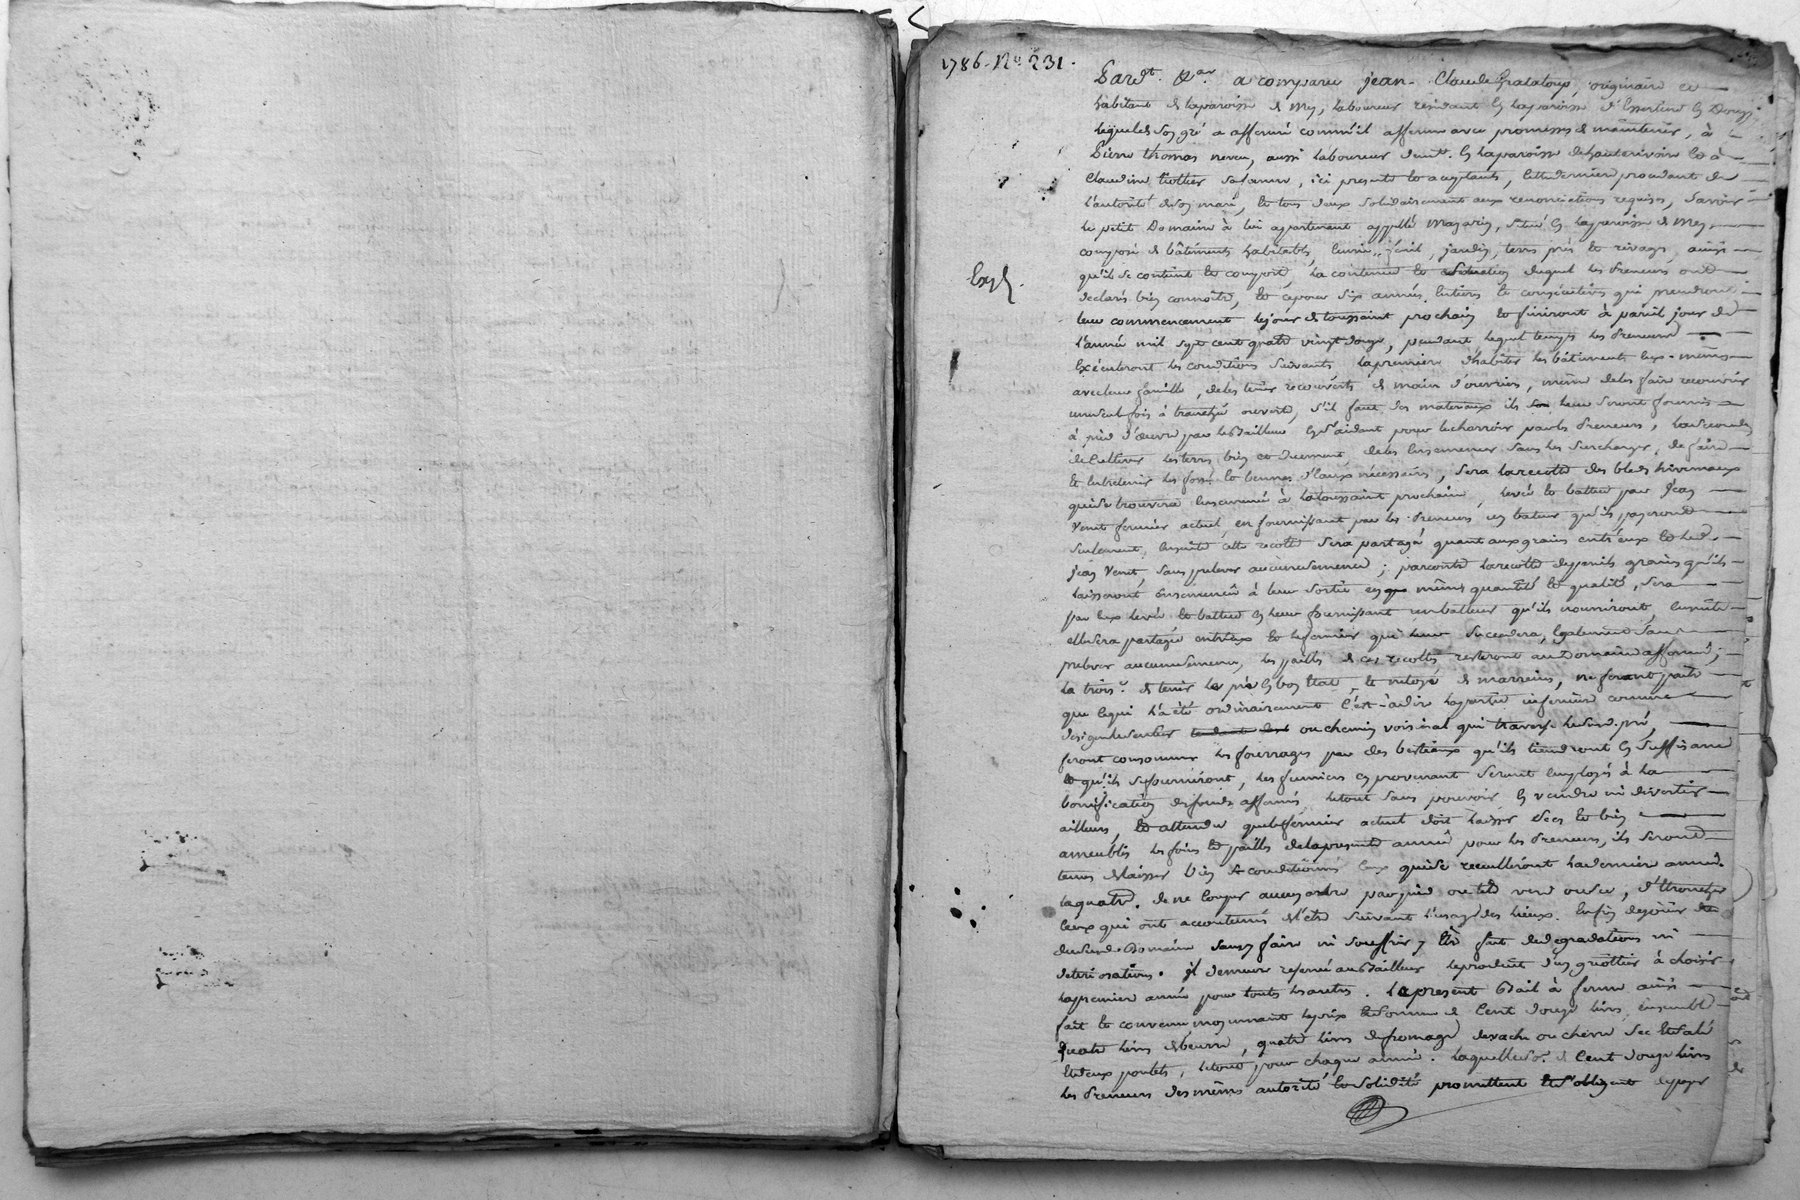 1786. No 231.
Pardt. &ar a comparu jean-Claude Grataloup, originaire et
habitant de laparoisse de Mys, laboureur residant en laparoisse d'Essertine en Donzy
lequel de son gré a affermé comme il afferme avec promesses de maintenir, à
Pierre thomas neveu, aussi laboureur demt. en laparoisse dehauterivoire et à
Claudine trollier safemme, ici presents et acceptants, cettederniere procedant de
l'autorité deson mari, et tous deux solidairement aux renonciations requises, Savoir
le petit Domaine à lui appartenant appellé Mazarin, situé en laparoisse de Meys
composé de bâtiments habitables, curie, fenil, jardin, terres prés et rivages, ainsi
qu'il se contient et comporte, la contenue et situation duquel les Preneurs ont
Exp.
declarés bien connoître, et cepour six années entieres et consécutives qui prendront
leur commencement lejour de toussaint prochain et finiront à pareil jour de
l'année mil sept cent quatre vingt douze, pendant lequel temps les Preneurs
Exécuteront les conditions suivantes lapremiere d'habiter les bâtiments eux-mêmes
avecleur famille, deles tenir recouverts de main d'ouvriers, même deles faire recouvrir
uneseule fois à tranchée ouverte, s'il faut des materiaux ils leur seront fournis
à pied d'œuvre par leBailleur en s'aidant pour lecharroir parles Preneurs, laseconde
deCultiver les terres bien et duement deles ensemencer sans les surcharger, de faire
et entretenir les fossés et bennes d'eaux nécessaires, sera larecolte des bleds hivernaux
quise trouvera ensemencé à latoussaint prochain, levée et battue par jean
Venet fermier actuel, en fournissant par les Preneurs un bateur qu'ils payeront
seulement, ensuite cette recolte sera partagé quant aux grains entr'eux et led.
jean Venet, sans prelever aucunesemence; parcontre larecolte depareils grains qu'ils
laisseront ensemencée à leur sortie en même quantité et qualité, sera
par eux levée et battue en leur fournissant unbatteur qu'ils nourriront, ensuite
ellesera partagée entr'eux et lefermier qui leur succedera, Egalement sans
prelever aucunesemence, les pailles de ces recoltes resteront auDomaine affermé;
La trois.e de tenir le pré en bon Etat, le netoyé de marreins, ne feront paitre
que cequi l'a été ordinairement c'est-à-dire lapartie inferieure comme
ou chemin voisinal qui traverse ledit pré,
feront consommer les fourrages par des bestiaux qu'ils tiendront en suffisance
et qu'ils sefourniront, les fumiers en provenant seront employés à la
bonification desfonds affermés, letout sans pouvoir en vendre ni divertir
ailleurs, et attendu quelefermier actuel doit laisser secs et bien
ameublés les foins et pailles delapresente année pour les Preneurs, ils seront
tenus delaisser bien & conditionnés ceux quise recueilleront laderniere année.
laquatre. de ne Couper aucun arbre par pied ou tête verd ou sec, d'Etroncher
Ceux qui ont accoutumés del'etre suivant l'usage des lieux. Enfin dejouir
dudit Domaine sansy faire ni souffrir y être fait dedegradations ni
deteriorations. il demeure reservé auBailleur leproduit d'un griottier à choisir
lapremiere année pour toutes les autres. Lepresent Bail à ferme ainsi
fait et convenu moyennant leprix etsomme de Cent douze livres, ensemble
quatre livres debeurre, quatre livres defromage devache ou chevre sec etsalé
Etdeux poulets, letout pour chaque année. laquelle so.e de Cent douze livres
les Preneurs des mêmes autorité et solidité promettent et s'obligent depayer